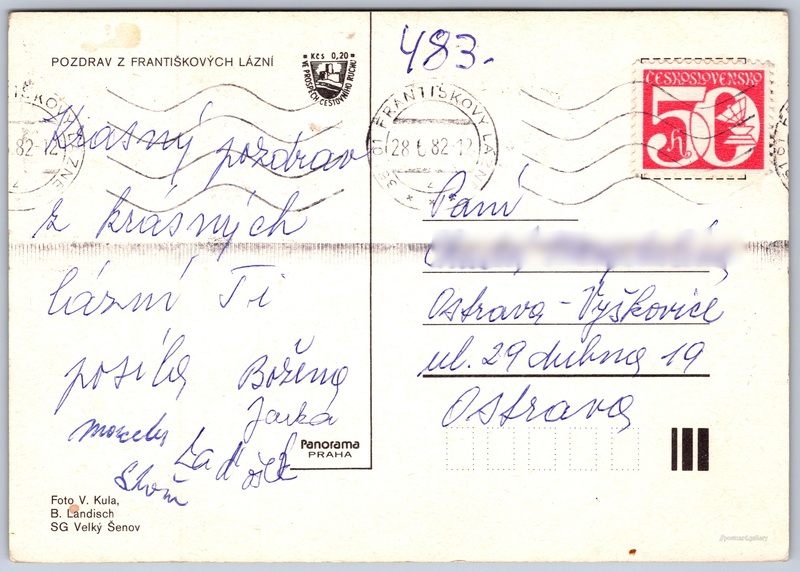 POZDRAV Z FRANTIŠKOVÝCH LÁZNÍ
Kčs 0,20
VE PROSPĚCH CESTOVNÍHO RUCHU
483.
ČESKOSLOVENSKO
50 h
FRANTIŠKOVY LÁZNĚ
28 6 82-12
351 01
82-12
Krásný pozdrav
z krásných
lázní Ti
posílá Božena
Jarka
Paní
Ostrava-Vyškovice
ul. 29 dubna 19
Ostrava
Panorama
PRAHA
Foto V. Kula,
B. Landisch
SG Velký Šenov